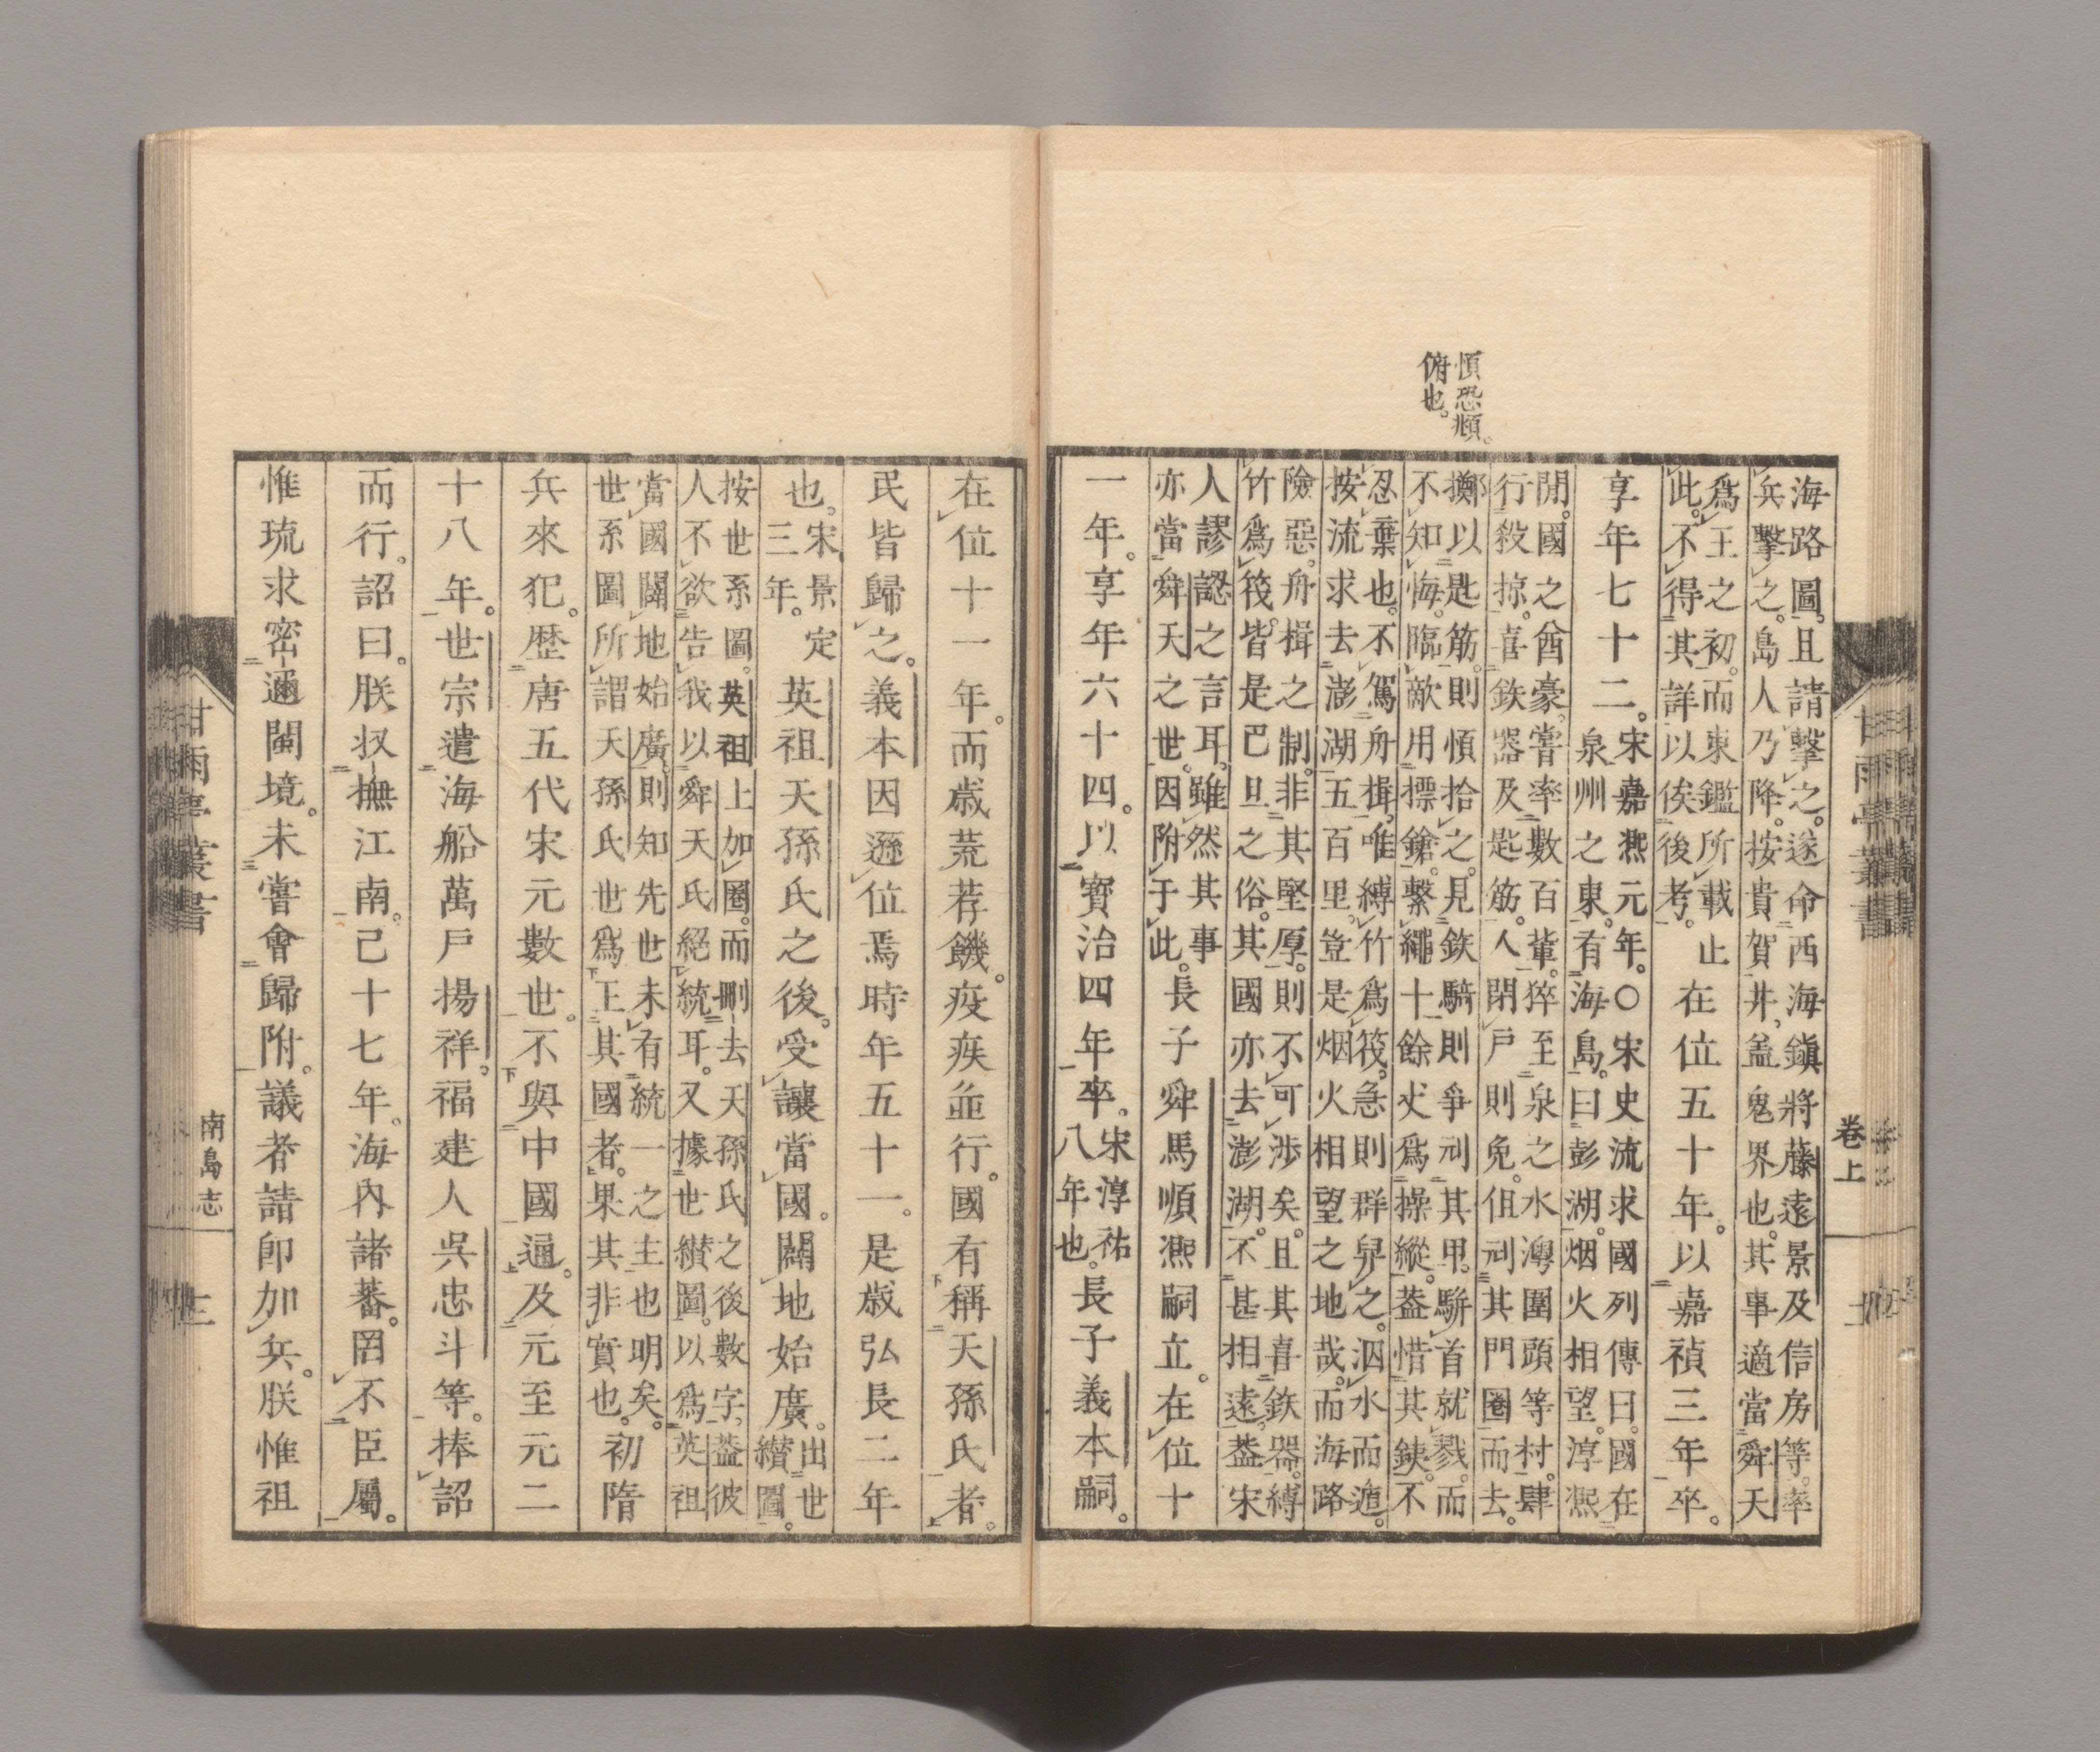 恐頫。
俯也。
海路圖。且請擊之。遂命西海鎭將藤遠景及信房等。率
兵擊之。島人乃降。按貴賀井、葢鬼界也。其事適當舜天
爲王之初。而東鑑所載止
此。不得其詳。以俟後考。
在位五十年。以嘉禎三年卒。
享年七十二。
宋嘉熙元年。○宋史流求國列傳曰。國在
泉州之東。有海島。曰彭湖。烟火相望。淳熙
閒。國之酋豪、嘗率數百輩。猝至泉之水灣圍頭等村。肆
行殺掠。喜鉄器及匙筋。人閉戸則免。但刓其門圈而去。
擲以匙筋。則拾之。見鉄騎則爭刓其甲。駢首就戮。而
不知悔。臨敵用摽鎗。繫繩十餘丈爲操縱。葢惜其鉄。不
忍棄也。不駕舟楫。唯縛竹爲筏。急則群舁之。泅水而遁。
按流求去澎湖五百里。豈是烟火相望之地哉。而海路
險惡。舟楫之制。非其堅厚。則不可渉矣。且其喜鉄器。縛
竹爲筏。皆是巴旦之俗。其國亦去澎湖。不甚相遠。葢宋
人謬認之言耳。雖然其事
亦當舜天之世。因附于此。
長子舜馬順熙嗣立。在位十
一年。享年六十四。以寶治四年卒。
宋淳祐
八年也。
長子義本嗣。
甘雨亭叢書
卷上
在位十一年。而歳荒荐饑。疫疾並行。國有稱天孫氏者。
民皆歸之。義本因遜位焉。時年五十一。是歳弘長二年
也。
宋景定
三年。
英祖天孫氏之後。受讓當國。闢地始廣。
出世
纉圖。
按世系圖。英祖上加圈。而刪去天孫氏之後數字、葢彼
人不欲告我以舜天氏絕統耳。又據世纉圖。以爲英祖
當國闢地始廣。則知先世未有統一之主也明矣。
世系圖所謂天孫氏世爲王其國者。果其非實也。
初隋
兵來犯。歷唐五代宋元數世。不與中國通。及元至元二
十八年。世宗遣海船萬戸揚祥。福建人吳忠斗等。捧詔
而行。詔曰。朕収撫江南。己十七年。海內諸蕃。罔不臣屬。
惟琉求密邇閩境。未嘗會歸附。議者請卽加兵。朕惟祖
甘雨亭叢書
南島志